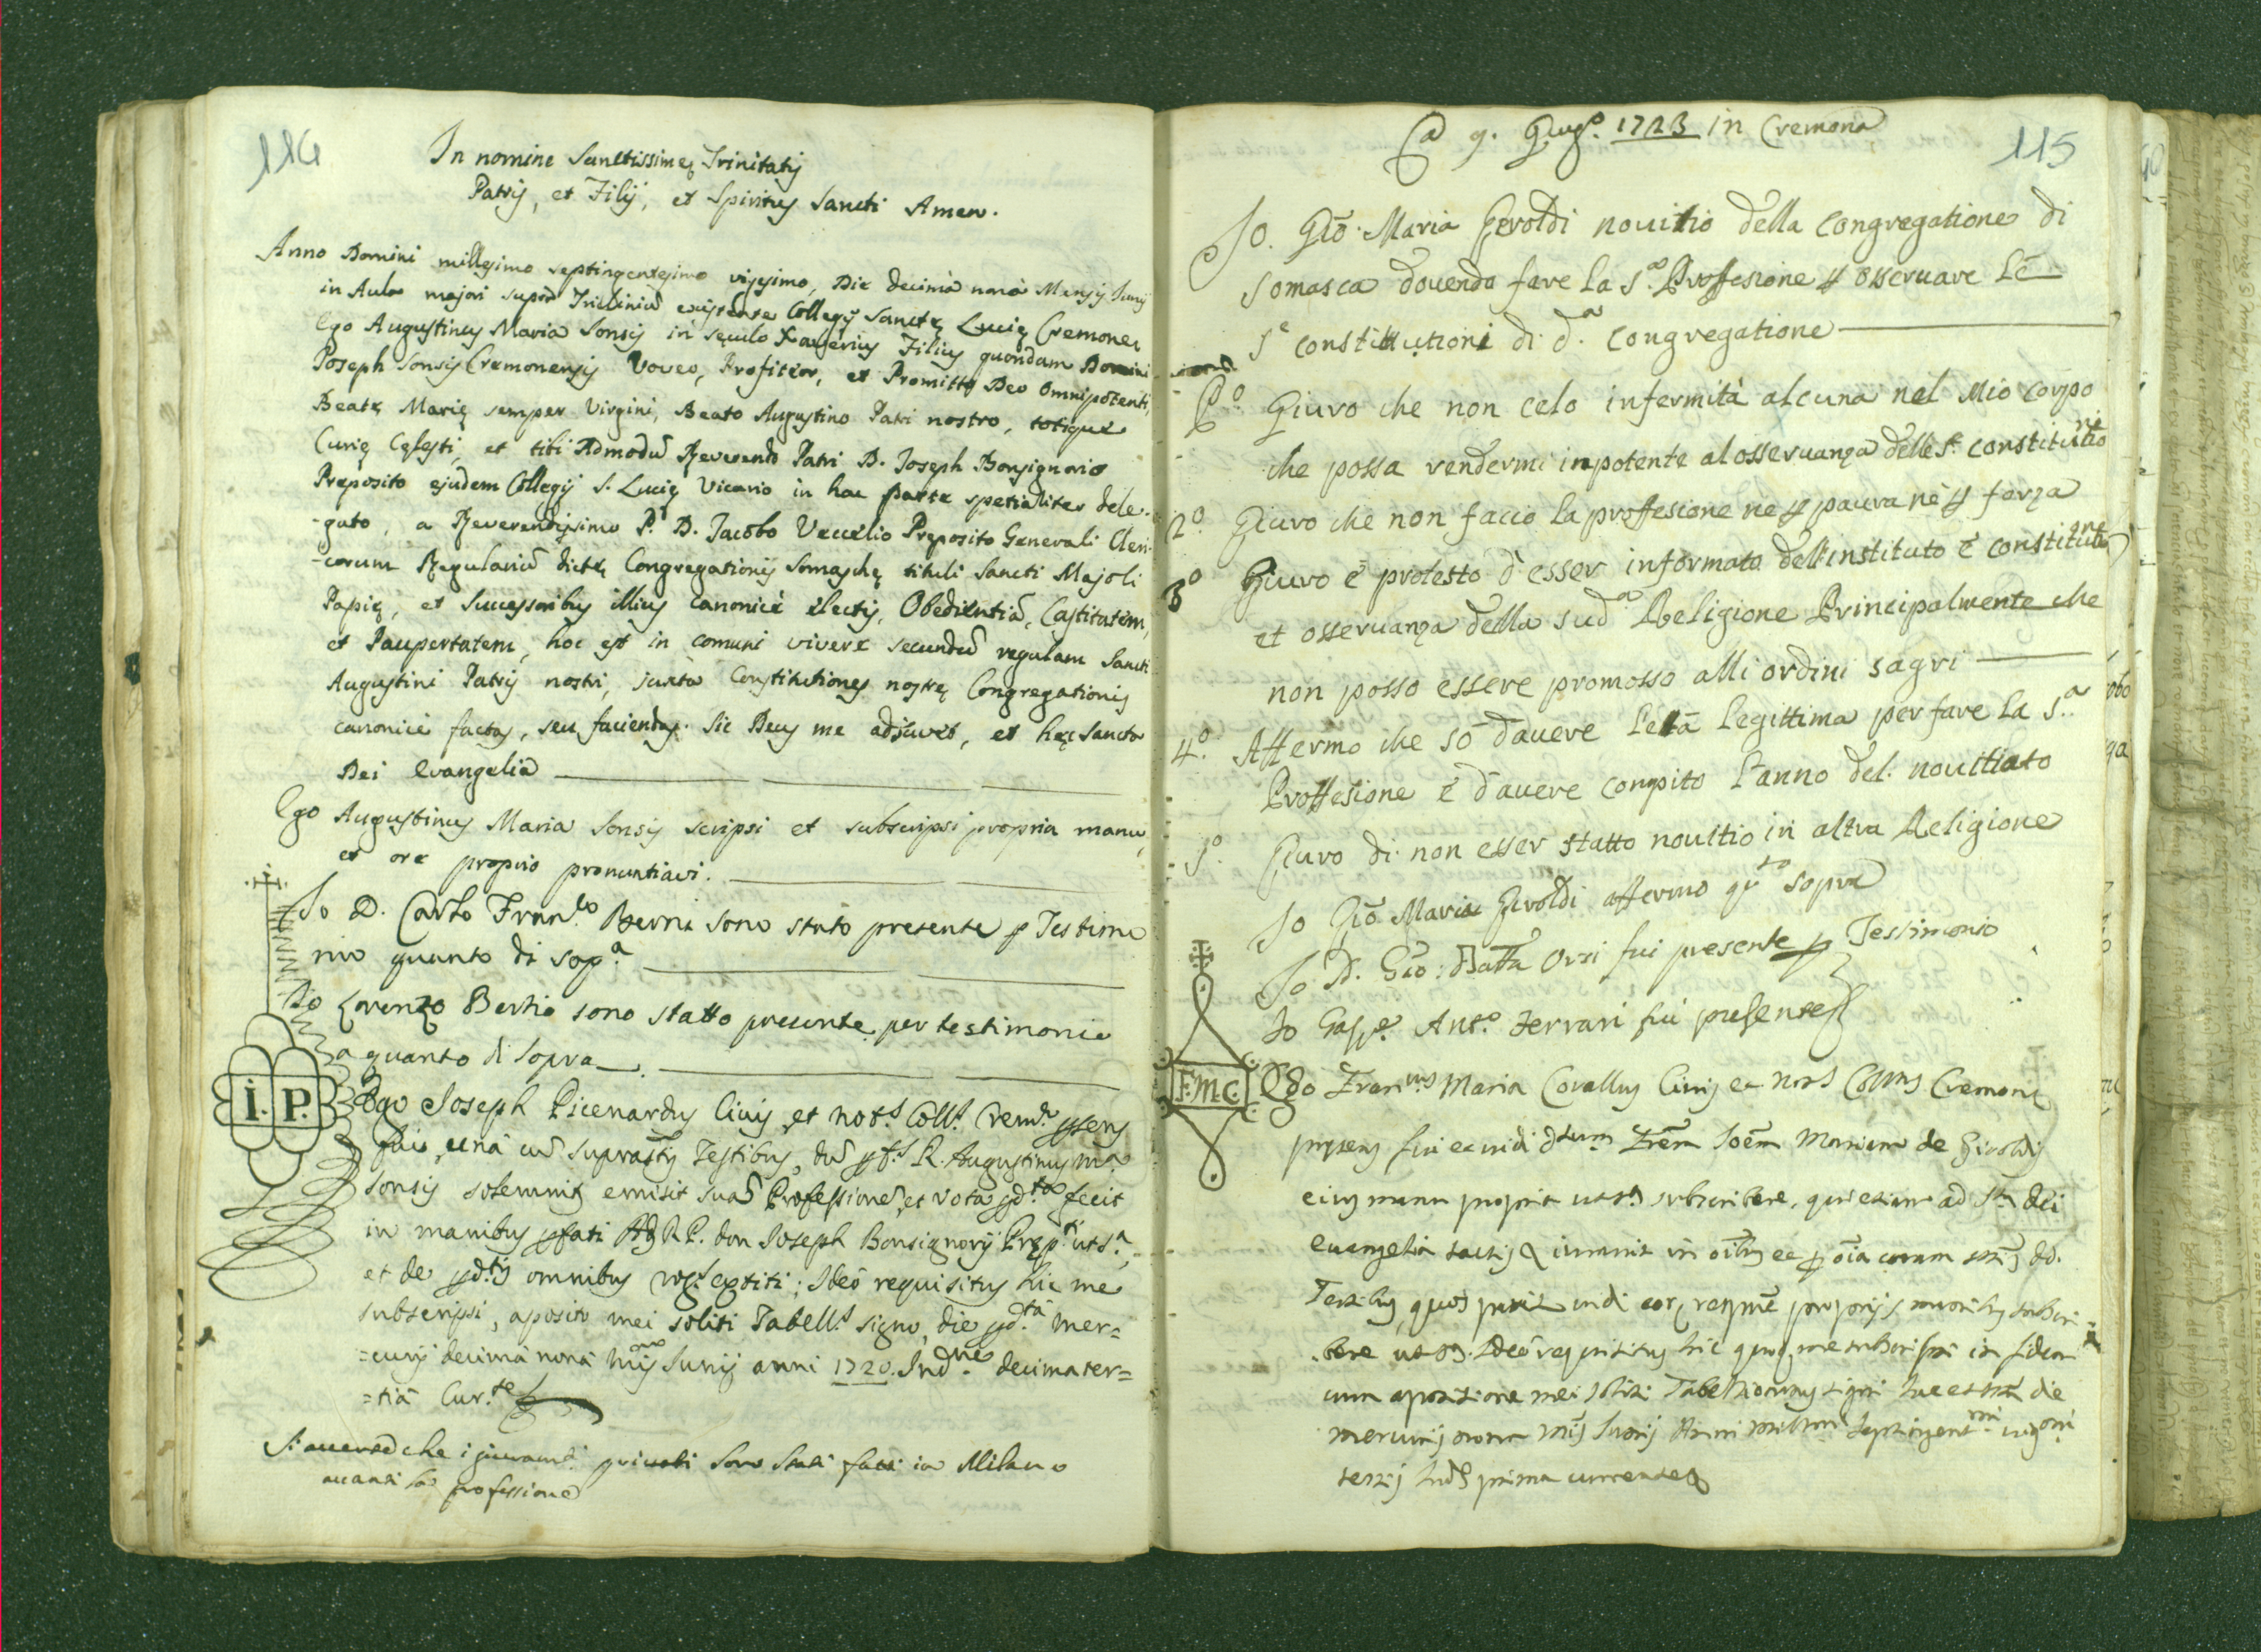 114
In nomine Sanctissimę Trinitatis
Patris, et Filij, et Spiritus Sancti Amen.
Anno Domini millesimo septingentesimo vigesimo, Die decimà nonà Mensis Junij
in Aula majori supra Triclinium existente Collegij Sanctę Lucię Cremonę
Ego Augustinus Maria Sonsis in sęculo Xaverius Filius quondam Domini
Joseph Sonsis Cremonensis Voveo, Profiteor, et Promitto Deo Omnipotenti,
Beatę Marię semper Virgini, Beato Augustino Patri nostro, totique
Curię Cęlesti, et tibi Admodũ Reverendo Patri D. Joseph Bonsignorio
Preposito ejusdem Collegij S. Lucię Vicario in hac parte spetialiter dele-
-gato, a Reverendissimo P. D. Jacobo Vecelio Pręposito Generali Cleri-
-corum Regulariũ dictę Congregationis Somaschę tituli Sancti Majoli
Papię, et Successoribus illius canonicè electis, Obedientiã, Castitatem,
et Paupertatem, hoc est in comuni vivere secundũ regulam Sancti
Augustini Patris nostri, juxta Constitutiones nostrę Congregationis
canonicè factas, seu faciendas. Sic Deus me adjuvet, et hęc Sancta
Dei Evangelia
Ego Augustinus Maria Sonsis scripsi et subscripsi propria manu,
et ore proprio pronuntiavi.
Io D. Carlo Franco. Berni sono stato presente p Testimo
nio quanto di sopa.
Io Lorenzo Bertio sono statto presente per testimonio
a quanto di sopra.
I. P.
Ego Joseph Picenardus Civis et nots. Colls. Crem. pñs
fui, unà cũ suprãtis Testibus, dũ R. Augustinus Ma
Sonsis solemnitr emisit suã Professionẽ, et vota pd.ta fecit
in manibus pfati Adm R. P. don Joseph Bonsignorij Pręp.ti uts.a,
et de pd.tis omnibus rogs. extiti; Ideò requisitus hic me
subscripsi, aposito mei soliti Tabells. signo, die pd.tâ Mer=
=curij decimà nonà Junij anni 1720. Ind.ne decimater=
=tiâ Cur.te
Si averte che i giuramti privati sono stati fatti in Milano
avanti la professione
115
A 9. Giugo. 1723 in Cremona
Io. Giõ. Maria Giroldi novitio della Congregatione di
Somasca dovendo fare la S.a Proffesione p osservare le
S.e constitutioni di d.a Congregatione
P.o Giuro che non celo infermità alcuna nel Mio corpo
che possa rendermi inpotente al osservanza delle S.e constitutioni
2.o Giuro che non faccio la proffesione ne p paura nè p forza
3.o Giuro è protesto d'esser informato dell'instituto è constitutione
et osservanza della sud.a Religione Principalmente che
non posso essere promosso alli ordini sagri
4.o Affermo che sò d'avere l'età legittima per fare la S.a
Proffesione è d'avere conpito l'anno del novittiato
5.o Giuro di non esser statto novitio in altra Religione
Io Giõ Maria Giroldi affermo q.to sopra
Io D. Giõ: Batta Orsi fui presente p Testimonio
Io Gasp.e Ant.o Ferrari fui presente
F.M.C.
Ego Franus Maria Covallus Civis et nots Cremonę
pręsens fui et vidi dtum Joẽm Mariam de Giroldis
eius manu propria uts. subscribere, qui etiam ad Sta dei
euangelia tactis iuravit in oĩbus et p oĩa coram dd.
Testibus, quos vidi eor propriis manibus subscri-
-bere uts. Ideò requisitus hic me subscripsi in fidem
cum apositione mei soliti Tabellionatus signi die
mercurij nona mẽs Junij Anni millmi septingentmi
tertij Inds prima currente